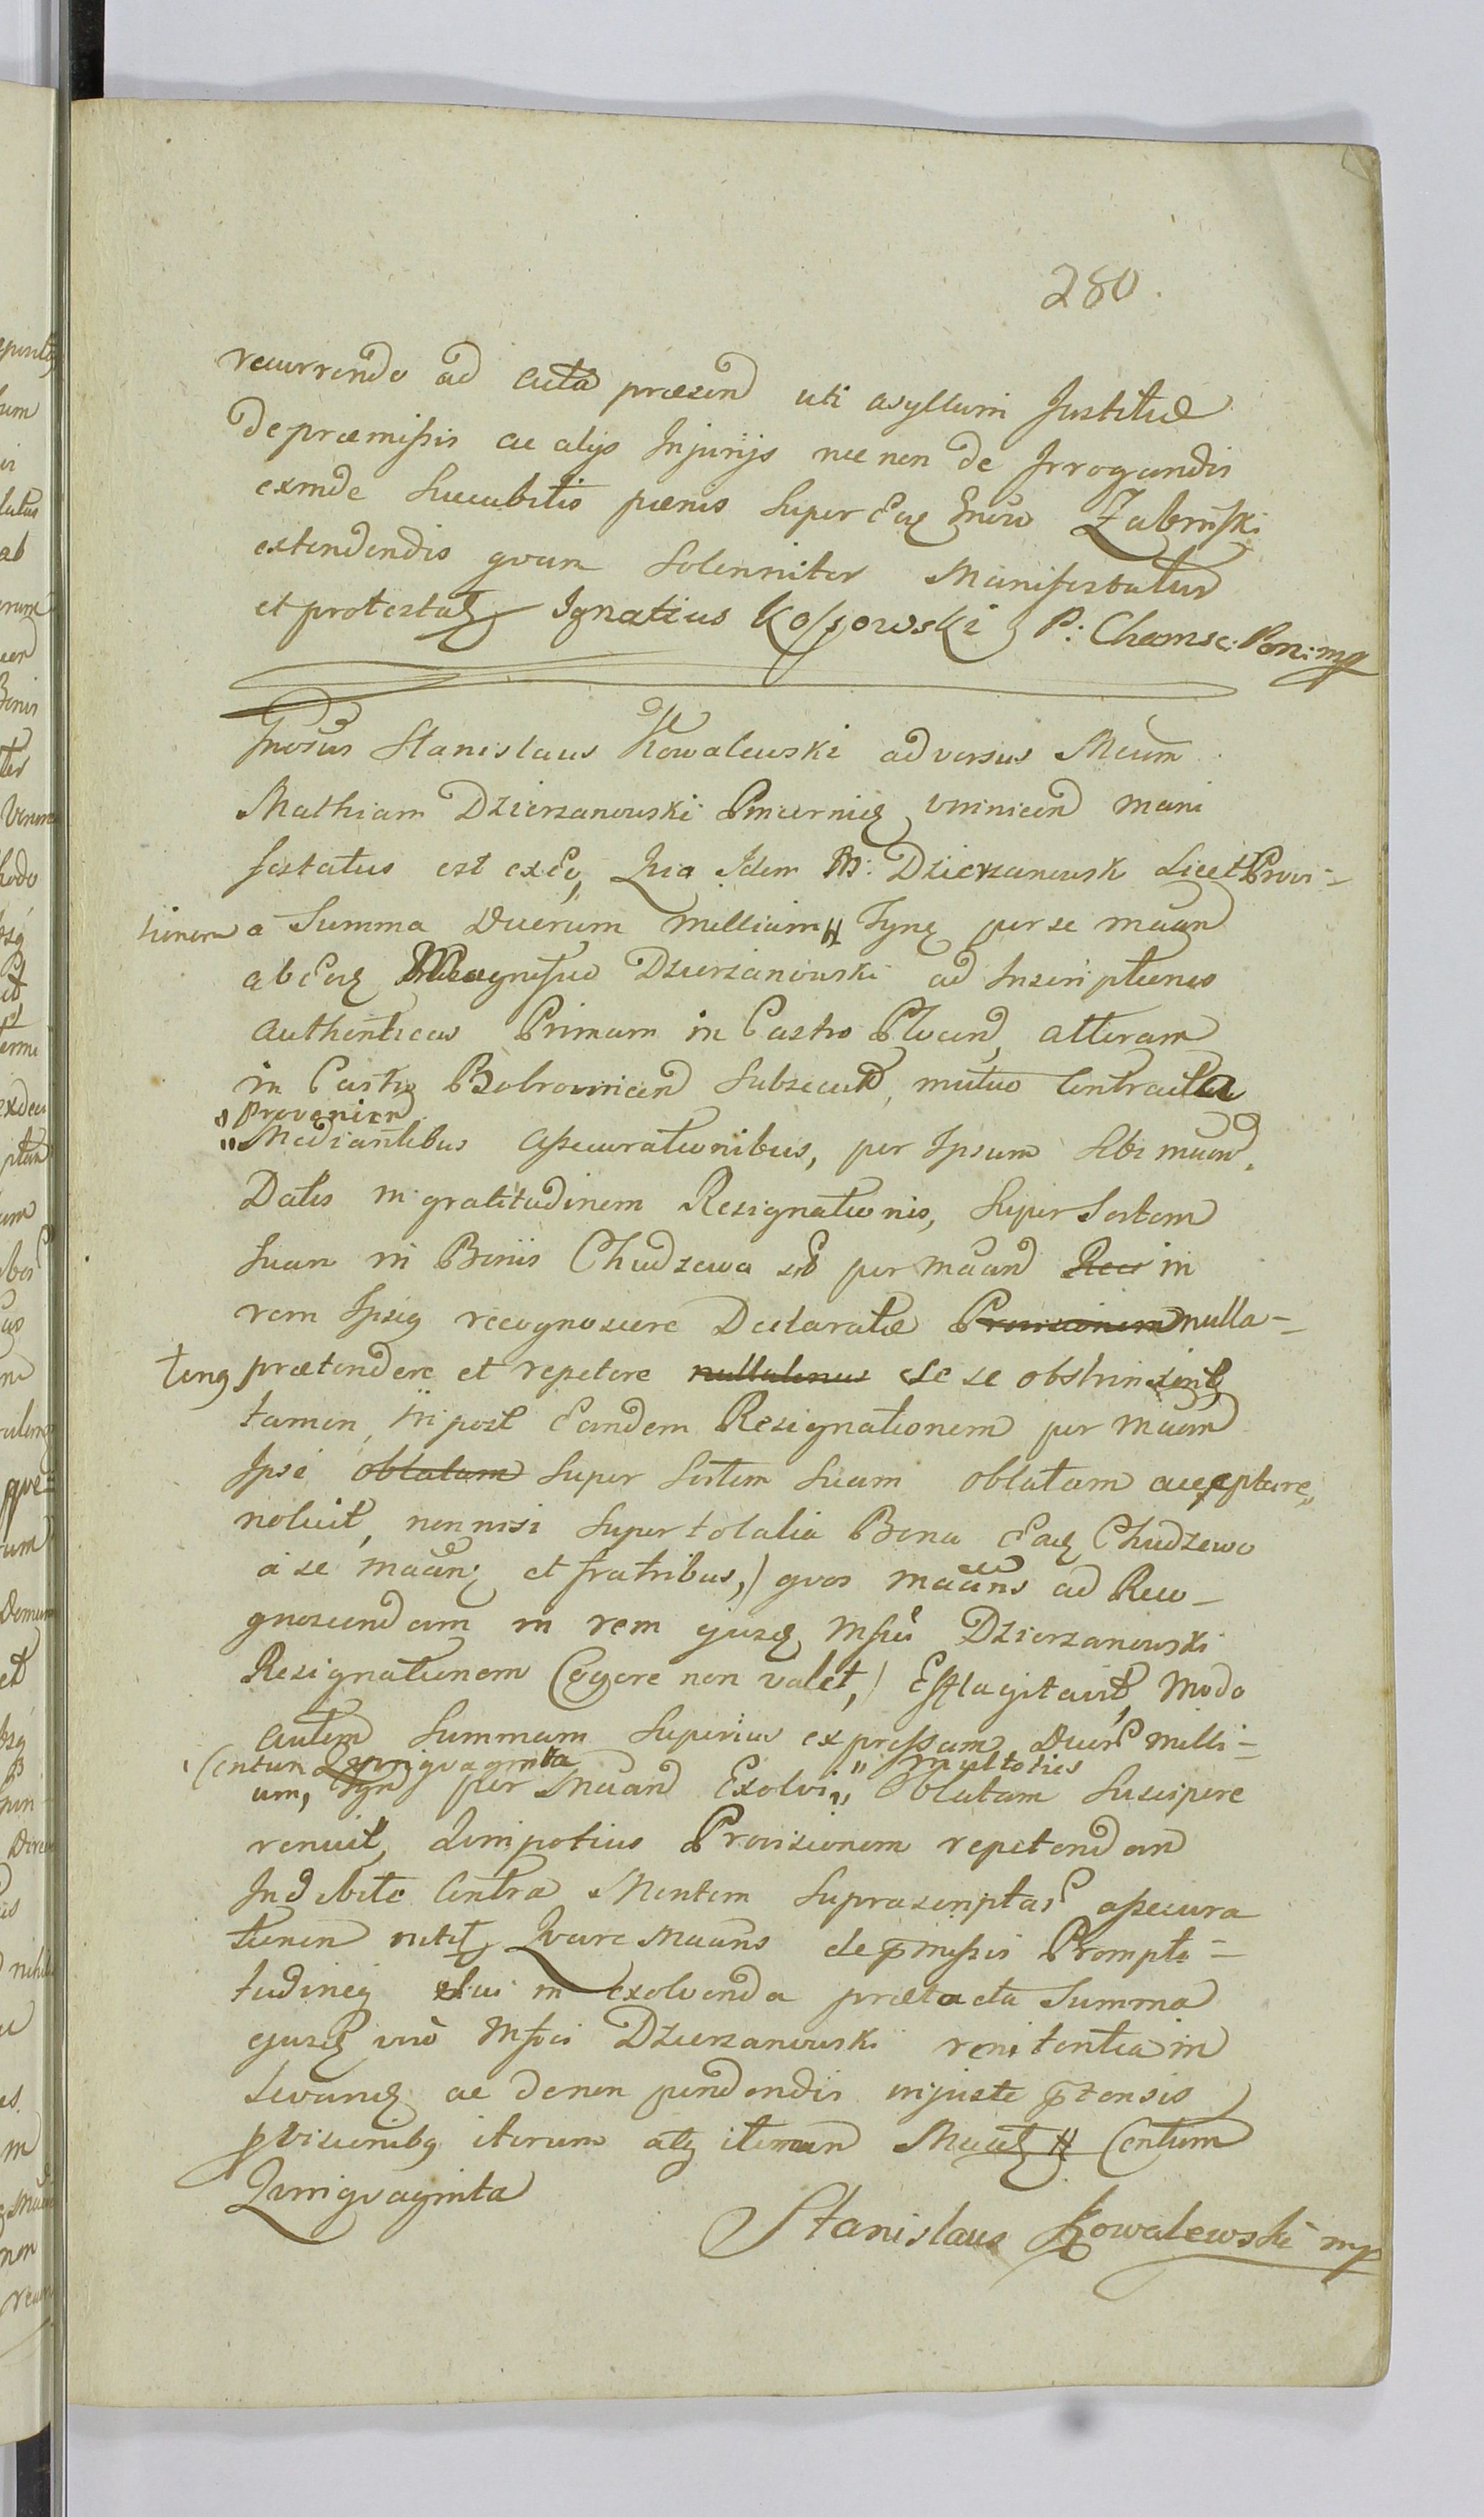 280.
recurrendo ad acta præsend uti asyllum Justitiæ
de præmissis ac alijs Injurijs nec non de Irrogandis
exinde Succubitis pænis Super Eosq
extendendis qvam Solenniter Manifestatur
et protestatq Ignatius Kossowski P: Chamsc: Pon: mp
Gnosus Stanislaus Kowalewski adversus Mcum
Mathiam Dzierzanowski Pincerniq vninicen mani
festatus est ex Eo, Qvia Idem M: Dzierzanowsk Licet Provi=
sionem a Summa Duorum millium Tynq per se maan
ab Eoq Magnifico Dzierzanowski ad Inscriptiones
authenticas Primam in Castro Plocen, alteram
in Castro Bobrownicen Subsecut, mutuo Contracta
provenien
Mediantibus assecurationibus, per Ipsum Sibi maan
Datis in gratitudinem Resignationis, Super Sortem
Suam in Bonis Chudzewa per maan Rec in
rem Ipsiq recognoscere Declaratæ Provisionem nulla=
tenq prætendere et repetere nullatenus se se obstrinxerit
tamen, post Eandem Resignationem per maan
Ipsi oblatam Super Sortem Suam oblatam acceptare
noluit, non nisi Super totalia Bona Eaq Chudzewo
a se maanq et fratribus,) qvos maans ad Reco_
gnoscendam in rem ejusq Mfici Dzierzanowski
Resignationem Cogere non valet,) Efflagitavit, Modo
autem Summam Superius expressam Duor milli=
Centum Qvinqvaginta multoties
um, Tyn per Maan Exolvi, Oblatam Suscipere
renuit, Qvin potius Provisionem repetendam
Indebite Contra Mentem Suprascriptar assecura
tionem nititq Qvare Maans de pmissis Prompti=
tudineq Sui in exolvenda prætacta Summa
ejusq vero Mfici Dzierzanowski renitentia in
Levanq ac de non pendendis injuste ptensis
pvisionibq iterum atq iterum Centum
Qvinqvaginta
Stanislaus Kowalewski mp